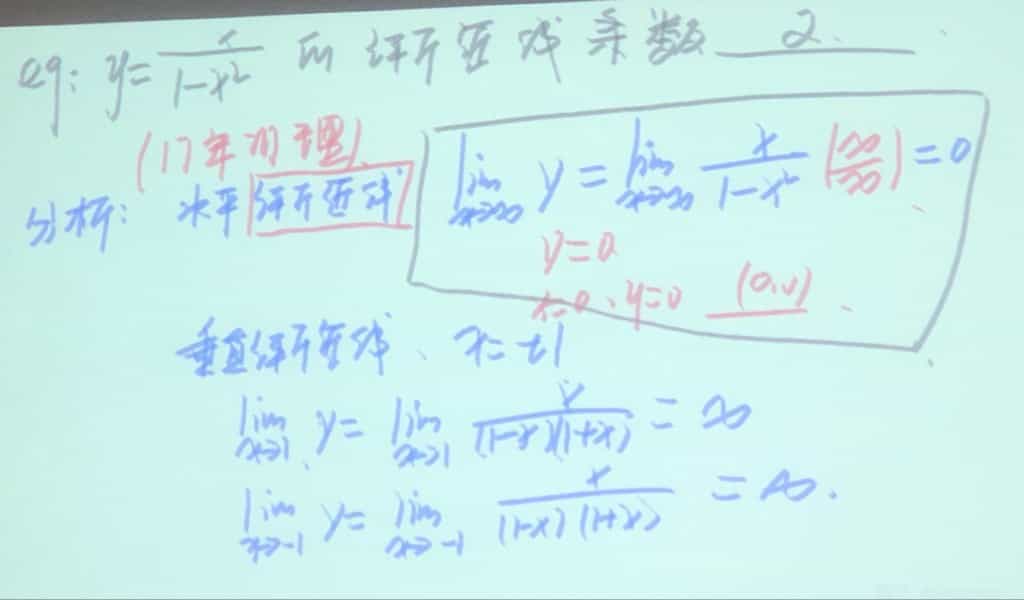 eg: y = x/(1-x²) 的渐近线条数 2.
(17年物理)
分析: 水平渐近线 lim x→∞ y = lim x→∞ x/(1-x²) (∞/∞) = 0
y=0
x=0、y=0 (0,0)
垂直渐近线、x=±1
lim x→1 y = lim x→1 x/((1-x)(1+x)) = ∞
lim x→-1 y = lim x→-1 x/((1-x)(1+x)) = ∞.